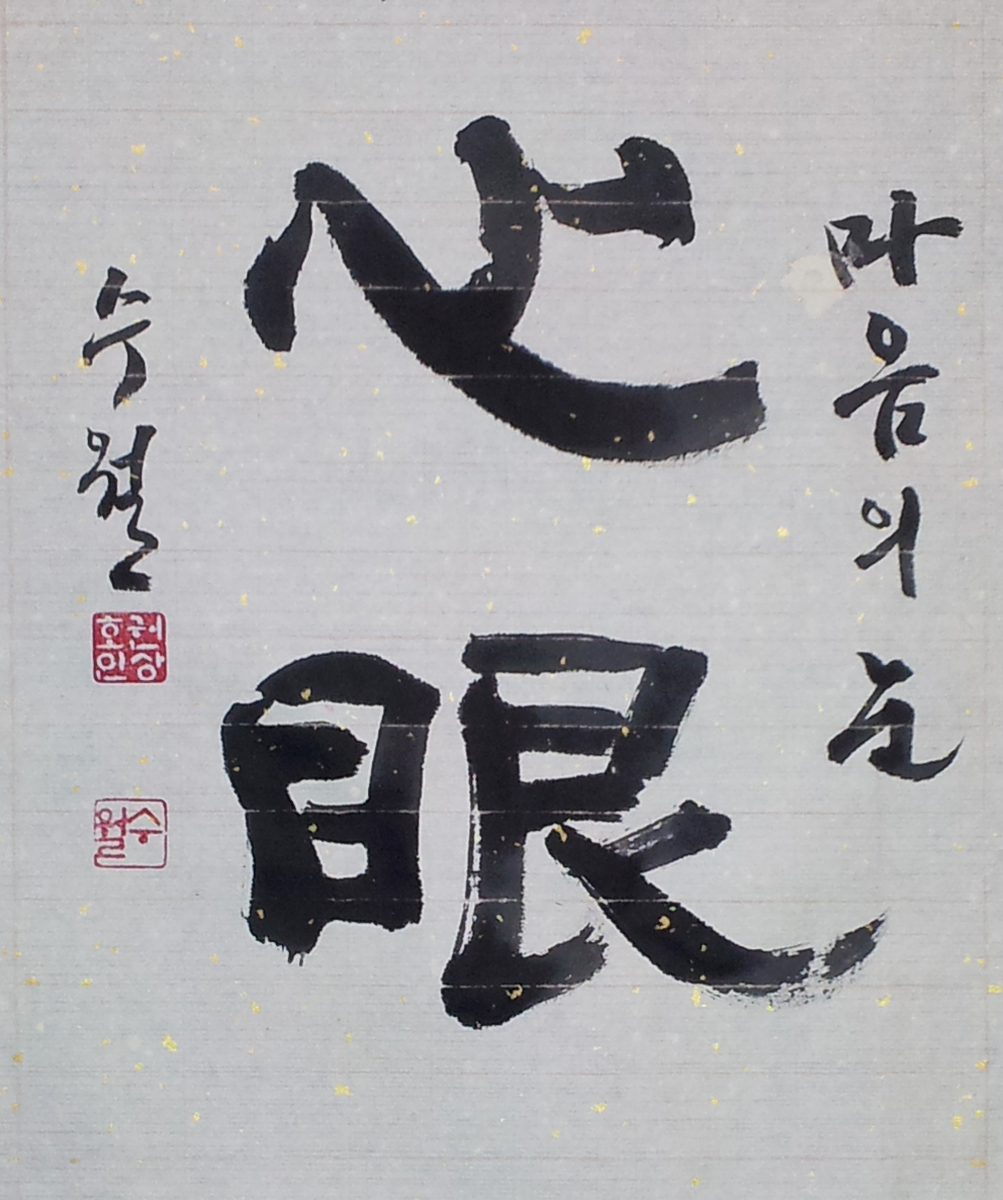 마음의 눈
心眼
수월
권상
호인
수월